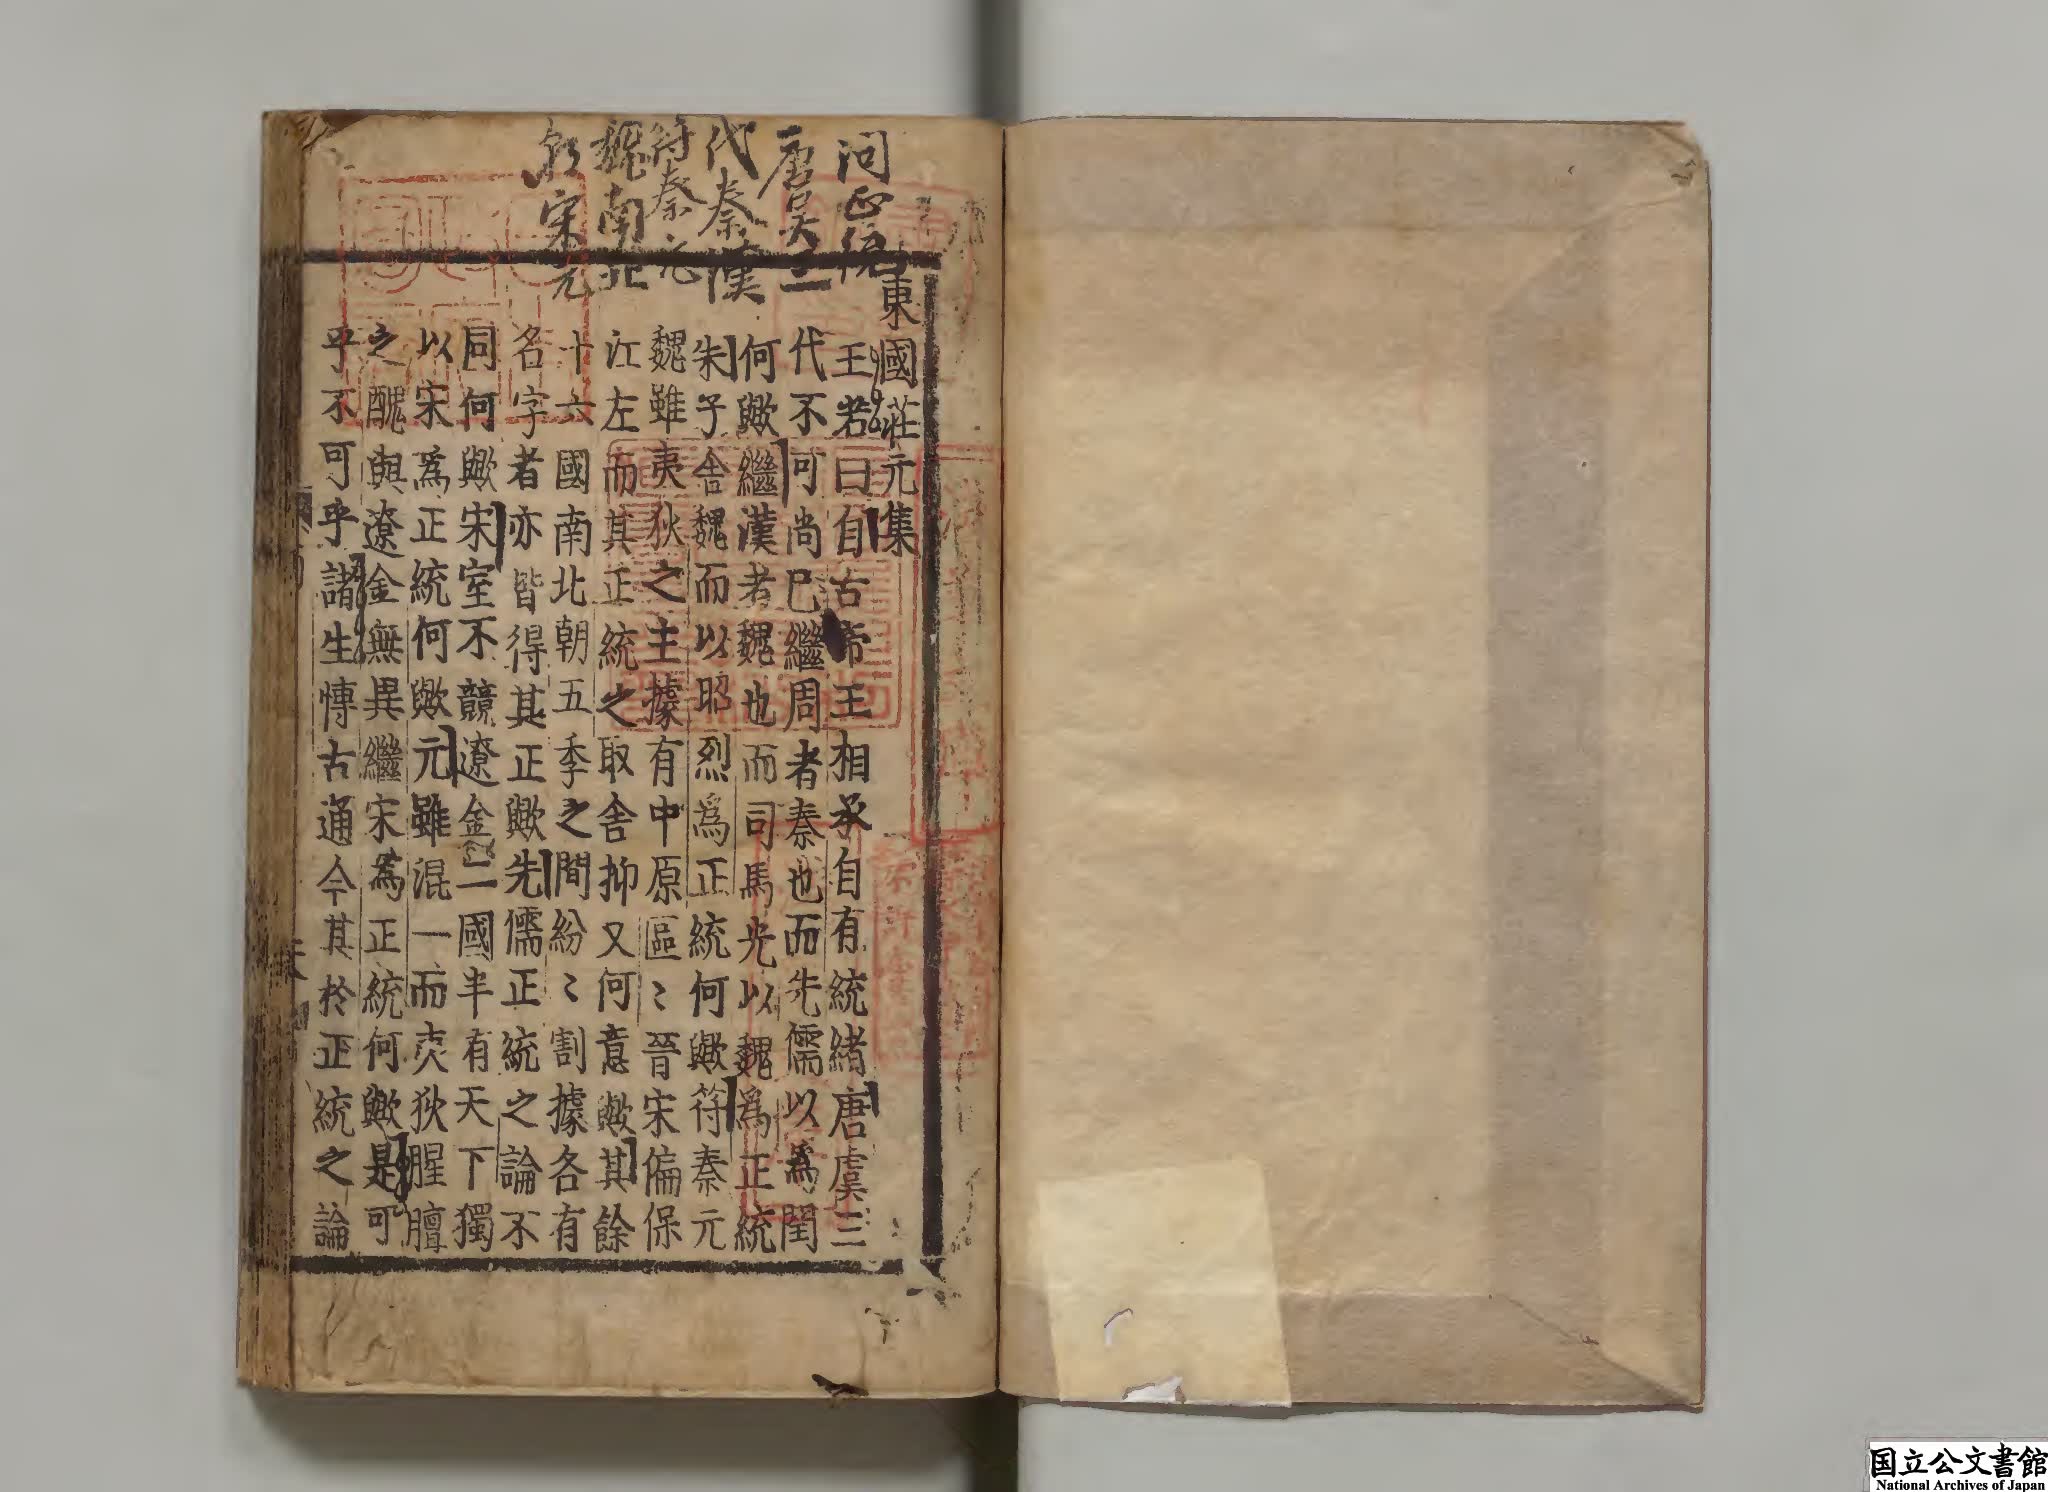 問正統
唐吴三
代秦漢
符秦元
魏南北
朝宋元
東國莊元集
王若曰自古帝王相承自有統緒唐虞三
代不可尚已繼周者秦也而先儒以爲閏
何歟繼漢者魏也而司馬光以魏爲正統
朱子舍魏而以昭烈爲正統何歟符秦元
魏雖夷狄之主據有中原區〻晉宋偏保
江左而其正統之取舍抑又何意歟其餘
十六國南北朝五季之間紛〻割據各有
名字者亦皆得其正歟先儒正統之論不
同何歟宋室不競遼金二國半有天下獨
以宋爲正統何歟元雖混一而夷狄腥膻
之醜與遼金無異繼宋爲正統何歟是可
乎不可乎諸生慱古通今其於正統之論
国立公文書館
National Archives of Japan